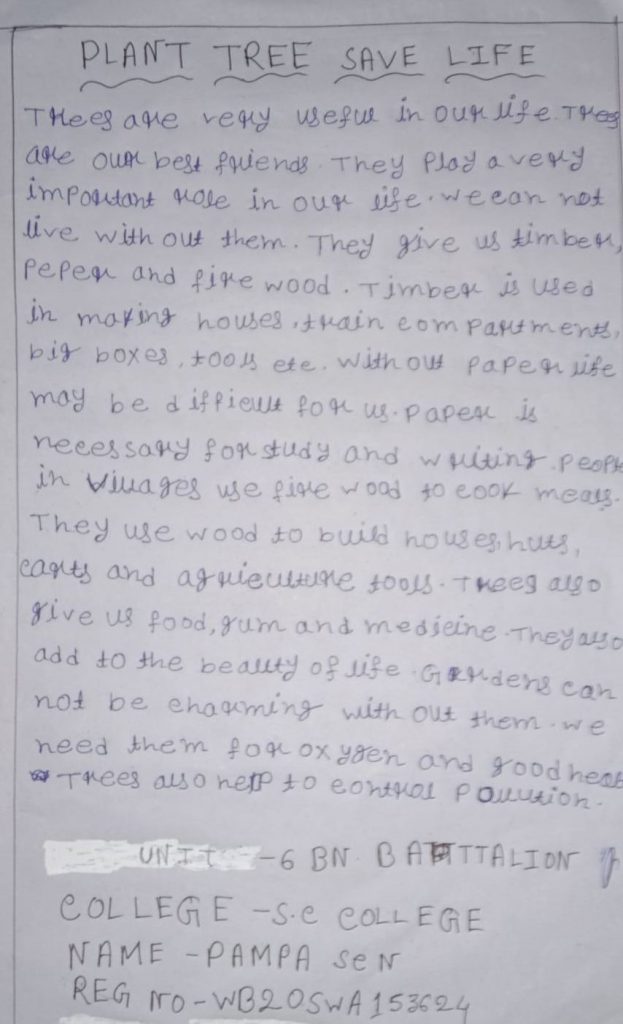 PLANT TREE SAVE LIFE
Trees are very useful in our life. Trees
are our best friends. They play a very
important role in our life. we can not
live with out them. They give us timber,
Peper and fire wood. Timber is used
in making houses, train compartments,
big boxes, tools etc. without paper life
may be difficult for us. paper is
necessary for study and writing. People
in villages use fire wood to cook meals.
They use wood to build houses, huts,
carts and agriculture tools. Trees also
give us food, gum and medicine. They also
add to the beauty of life. Gardens can
not be charming with out them. we
need them for oxygen and good heal
Trees also help to control Pollution.
UNIT - 6 BN BATTTALION
COLLEGE - S.C COLLEGE
NAME - PAMPA SEN
REG NO - WB20SWA153624